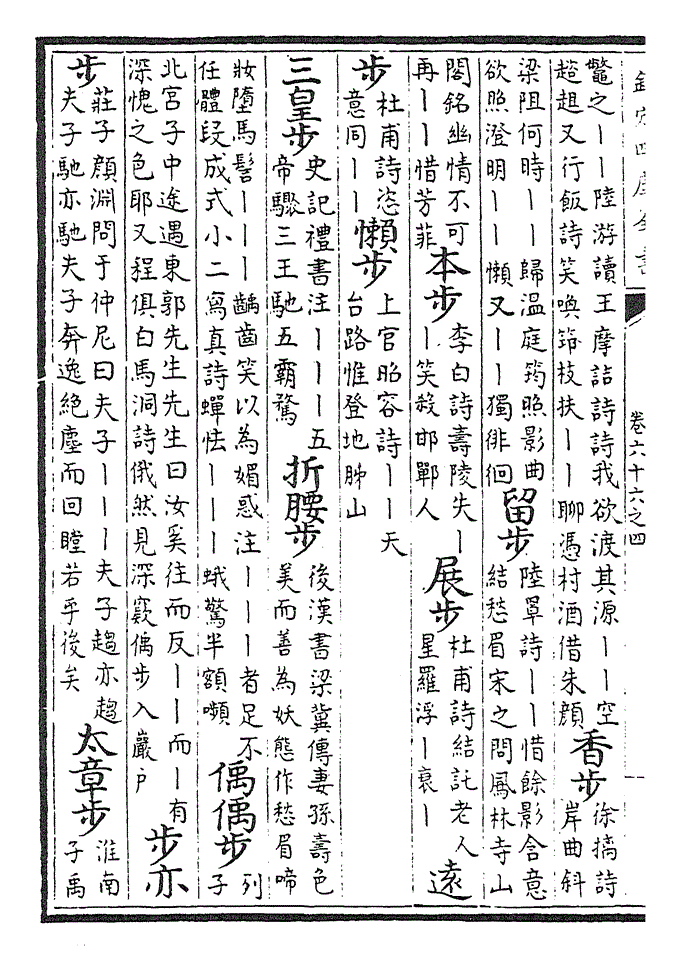 欽定四庫全書
卷六十六之四
鼈之丨丨陸游讀王摩詰詩詩我欲渡其源丨丨空
趦趄又行飯詩笑喚筇枝扶丨丨聊憑村酒借朱顔
香步
徐摛詩
岸曲斜
梁阻何時丨丨歸温庭筠照影曲
欲照澄明丨丨懶又丨丨獨徘徊
留步
陸罩詩丨丨惜餘影含意
結愁眉宋之問鳳林寺山
閣銘幽情不可
再丨丨惜芳菲
本步
李白詩壽陵失丨
丨笑殺邯鄲人
展步
杜甫詩結託老人
星羅浮丨衰丨
遠
步
杜甫詩恣
意同丨丨
懶步
上官昭容詩丨丨天
台路惟登地胏山
三皇步
史記禮書注丨丨丨五
帝驟三王馳五霸騖
折腰步
後漢書梁冀傳妻孫壽色
美而善為妖態作愁眉啼
妝墮馬髻丨丨丨齲齒笑以為媚惑注丨丨丨者足不
任體段成式小二寫真詩蟬怯丨丨丨蛾驚半額嚬
偊偊步
列
子
北宫子中途遇東郭先生先生曰汝奚往而反丨丨而丨有
深愧之色耶又程俱白馬洞詩俄然見深竅偊步入巖户
步亦
步
莊子顔淵問于仲尼曰夫子丨丨丨夫子趨亦趨
夫子馳亦馳夫子奔逸絶塵而回瞠若乎後矣
太章步
淮南
子禹